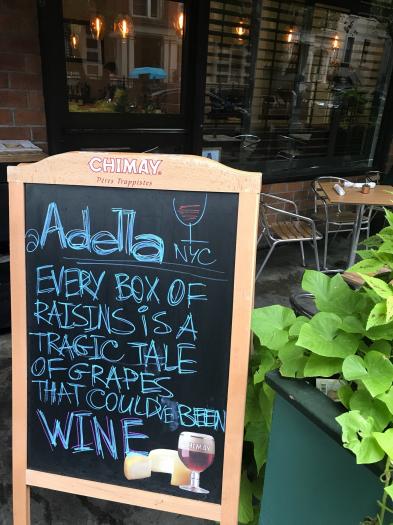 CHIMAY
Pères Trappistes
@Adella
NYC
EVERY BOX OF
RAISINS IS A
TRAGIC TALE
OF GRAPES
THAT COULD'VE BEEN
WINE
CHIMAY